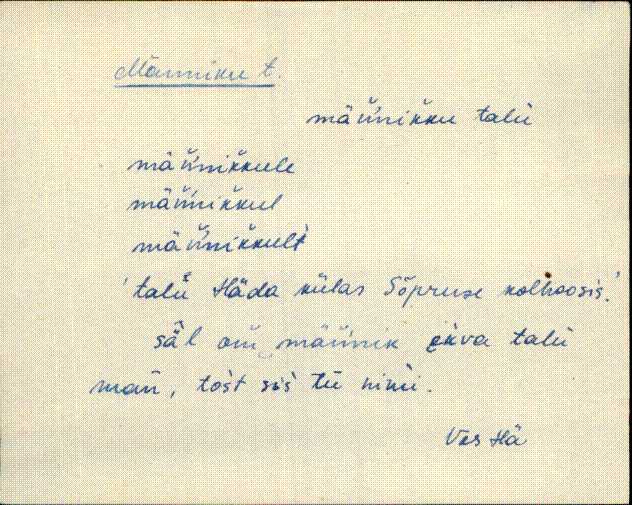 Männiku t.
männikku talu
männikkule
männikkul
männikkult
'talu Häda külas Sõpruse kolhoosis.'
säl om männik ekva talu
man, tost sis tu nimi.
Vas Hä